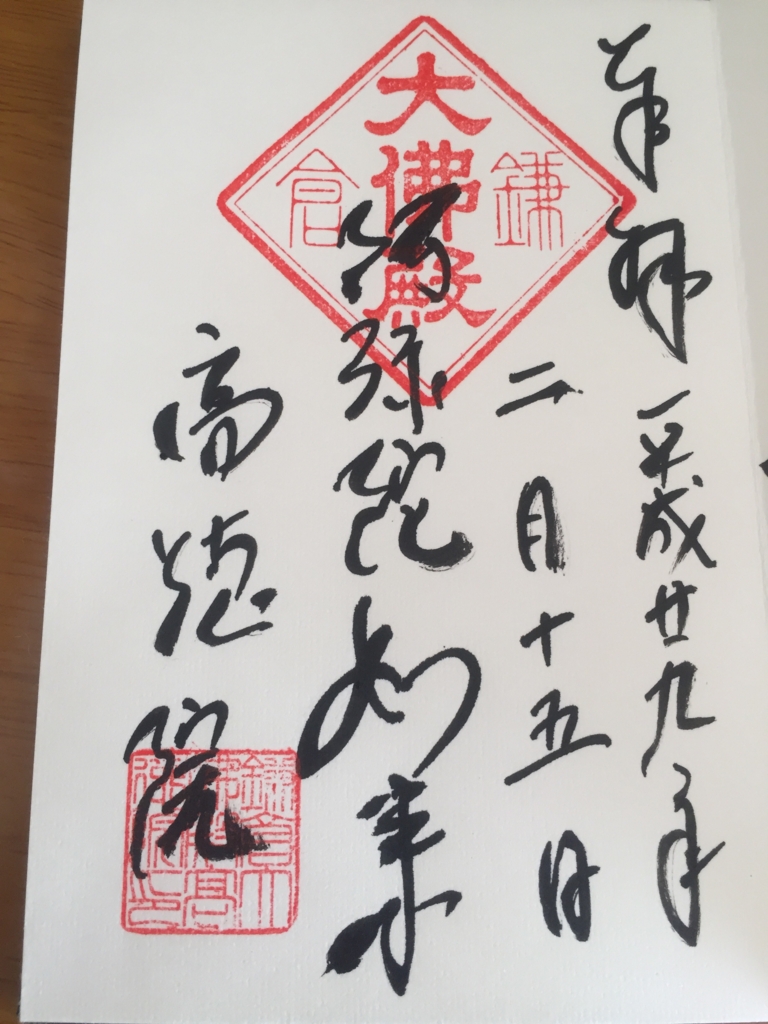 奉拝 平成廿九年
二月十五日
鎌倉
大佛殿
阿弥陀如来
高徳院